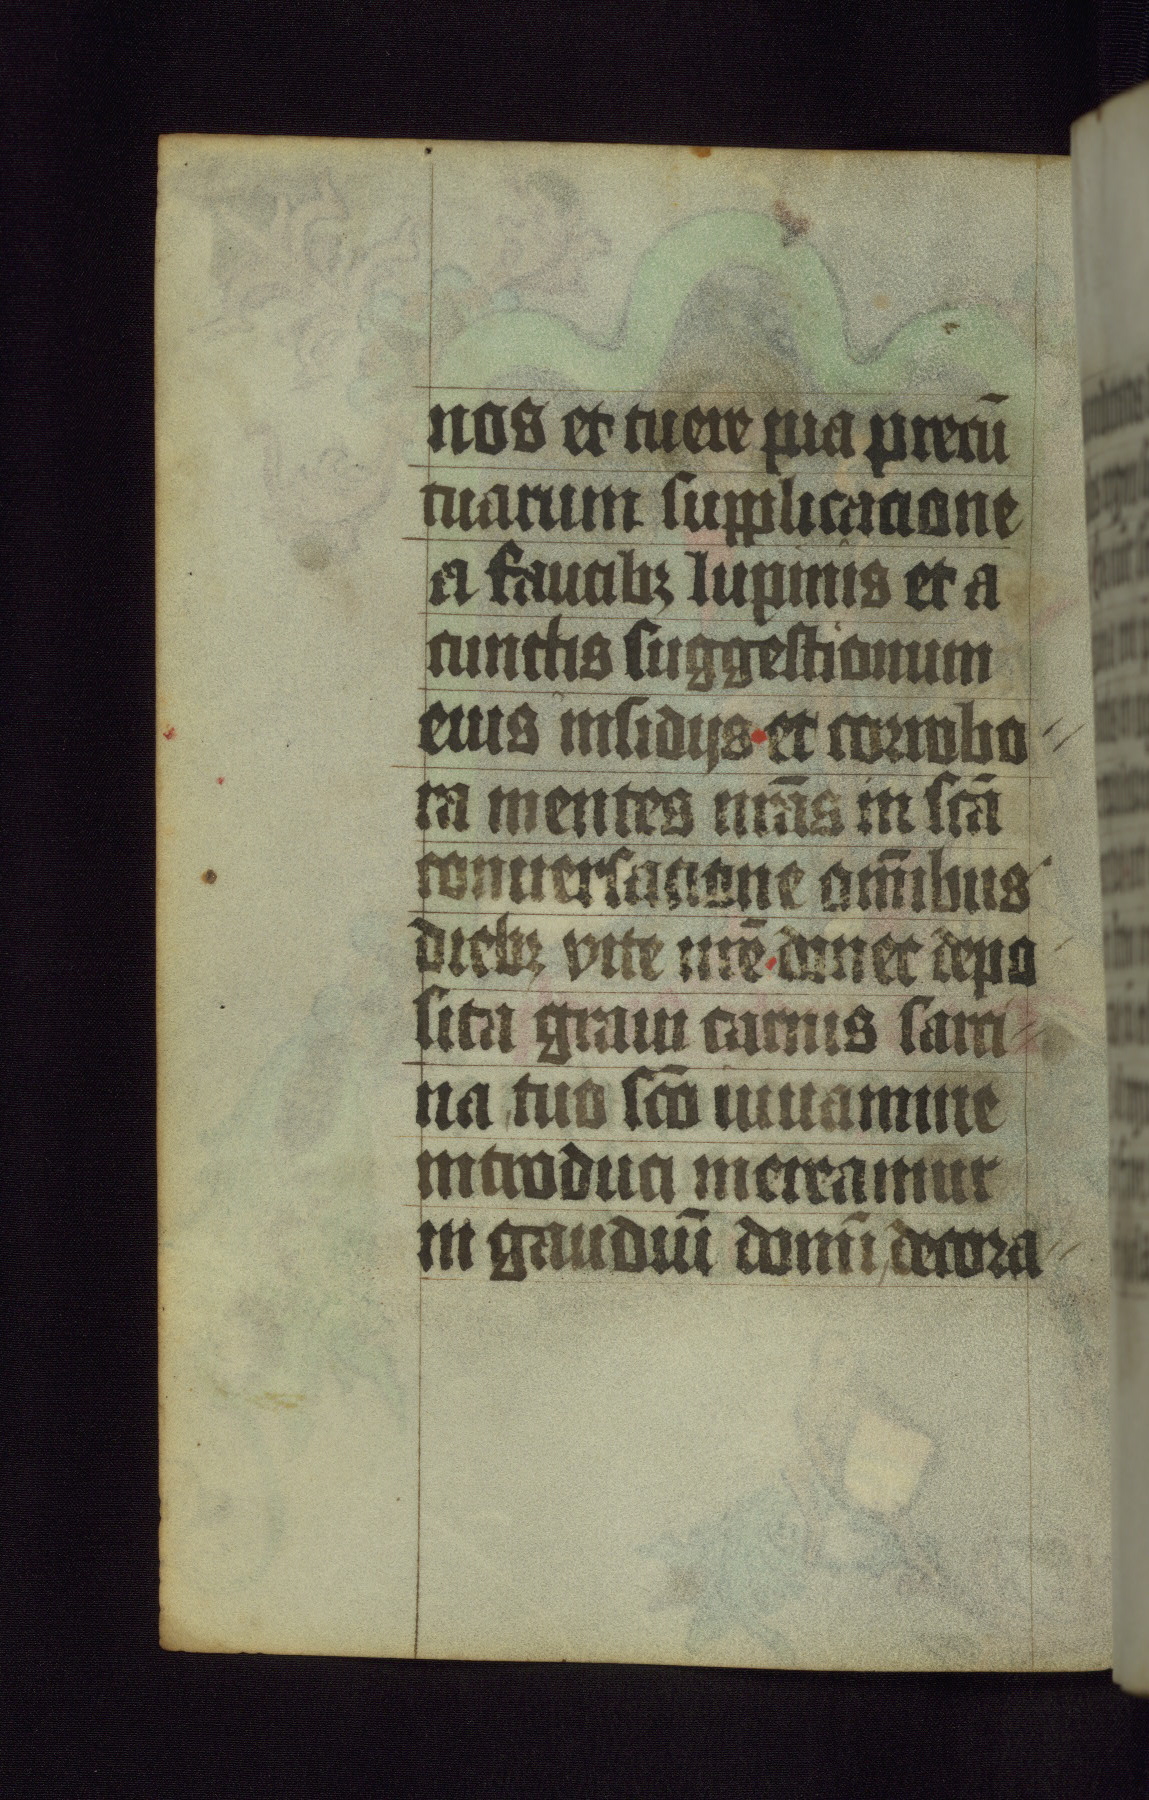 nos et tuere pia precū
tuarum supplicacione
a faucibꝫ lupinis et a
cunctis suggestionum
eius insidijs · et corrobo〃
ra mentes nr̄as in sc̄a
conuersacione om̄ibus
diebꝫ vite nr̄e · donec depo
sita graui carnis sarci〃
na tuo sc̄o iuuamine
introduci mereamur
in gaudiū domī decora〃